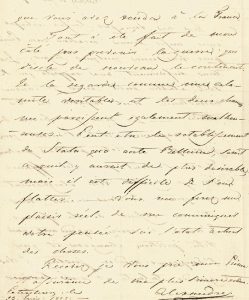 que vous avez rendus à la France
Tout a été fait de mon
côté pour prévenir la guerre qui
désole de nouveau le continent.
Je la regarde comme une cala-
mité véritable, et les deux
me paraissent également malheu-
reuses. Peut être le rétablissement
du Statu quo ante Bellum serait
ce qu'il y aurait de plus désirable
mais il est difficile de s'en
flatter. Vous me ferez un
plaisir réel de me communiquer
votre pensée sur l'état actuel
des choses.
Recevez je vous prie mon Prince
assurance de ma plus sincère
Alexandre